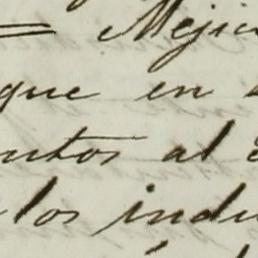 = Méjic
que en
ntos al
los indu